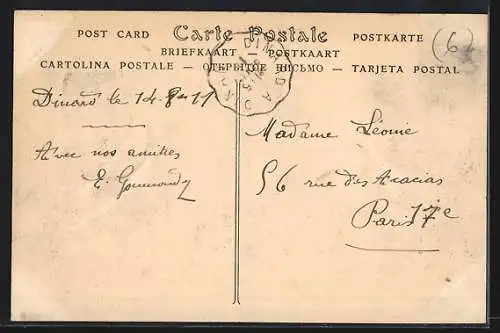 POST CARD Carte Postale POSTKARTE (6)
BRIEFKAART — POSTKAART
CARTOLINA POSTALE — ОТКРЫТОЕ ПИСЬМО — TARJETA POSTAL
Dinard le 14-8-11
Avec nos amitiés
E.
Madame Léonie
56 rue des Acacias
Paris 17e